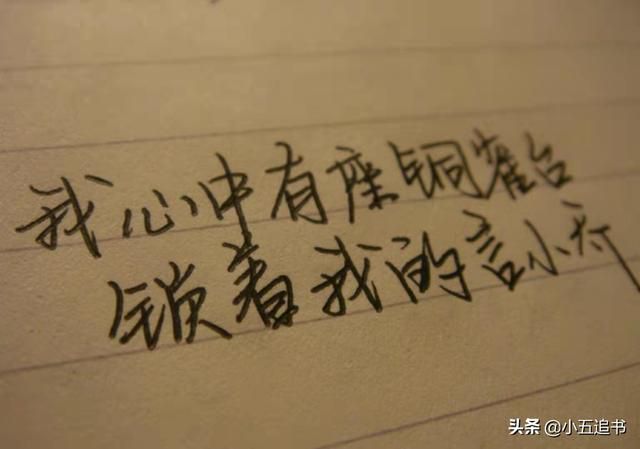 我心中有座铜雀台
锁着我的言小乔
头条 @小五追书